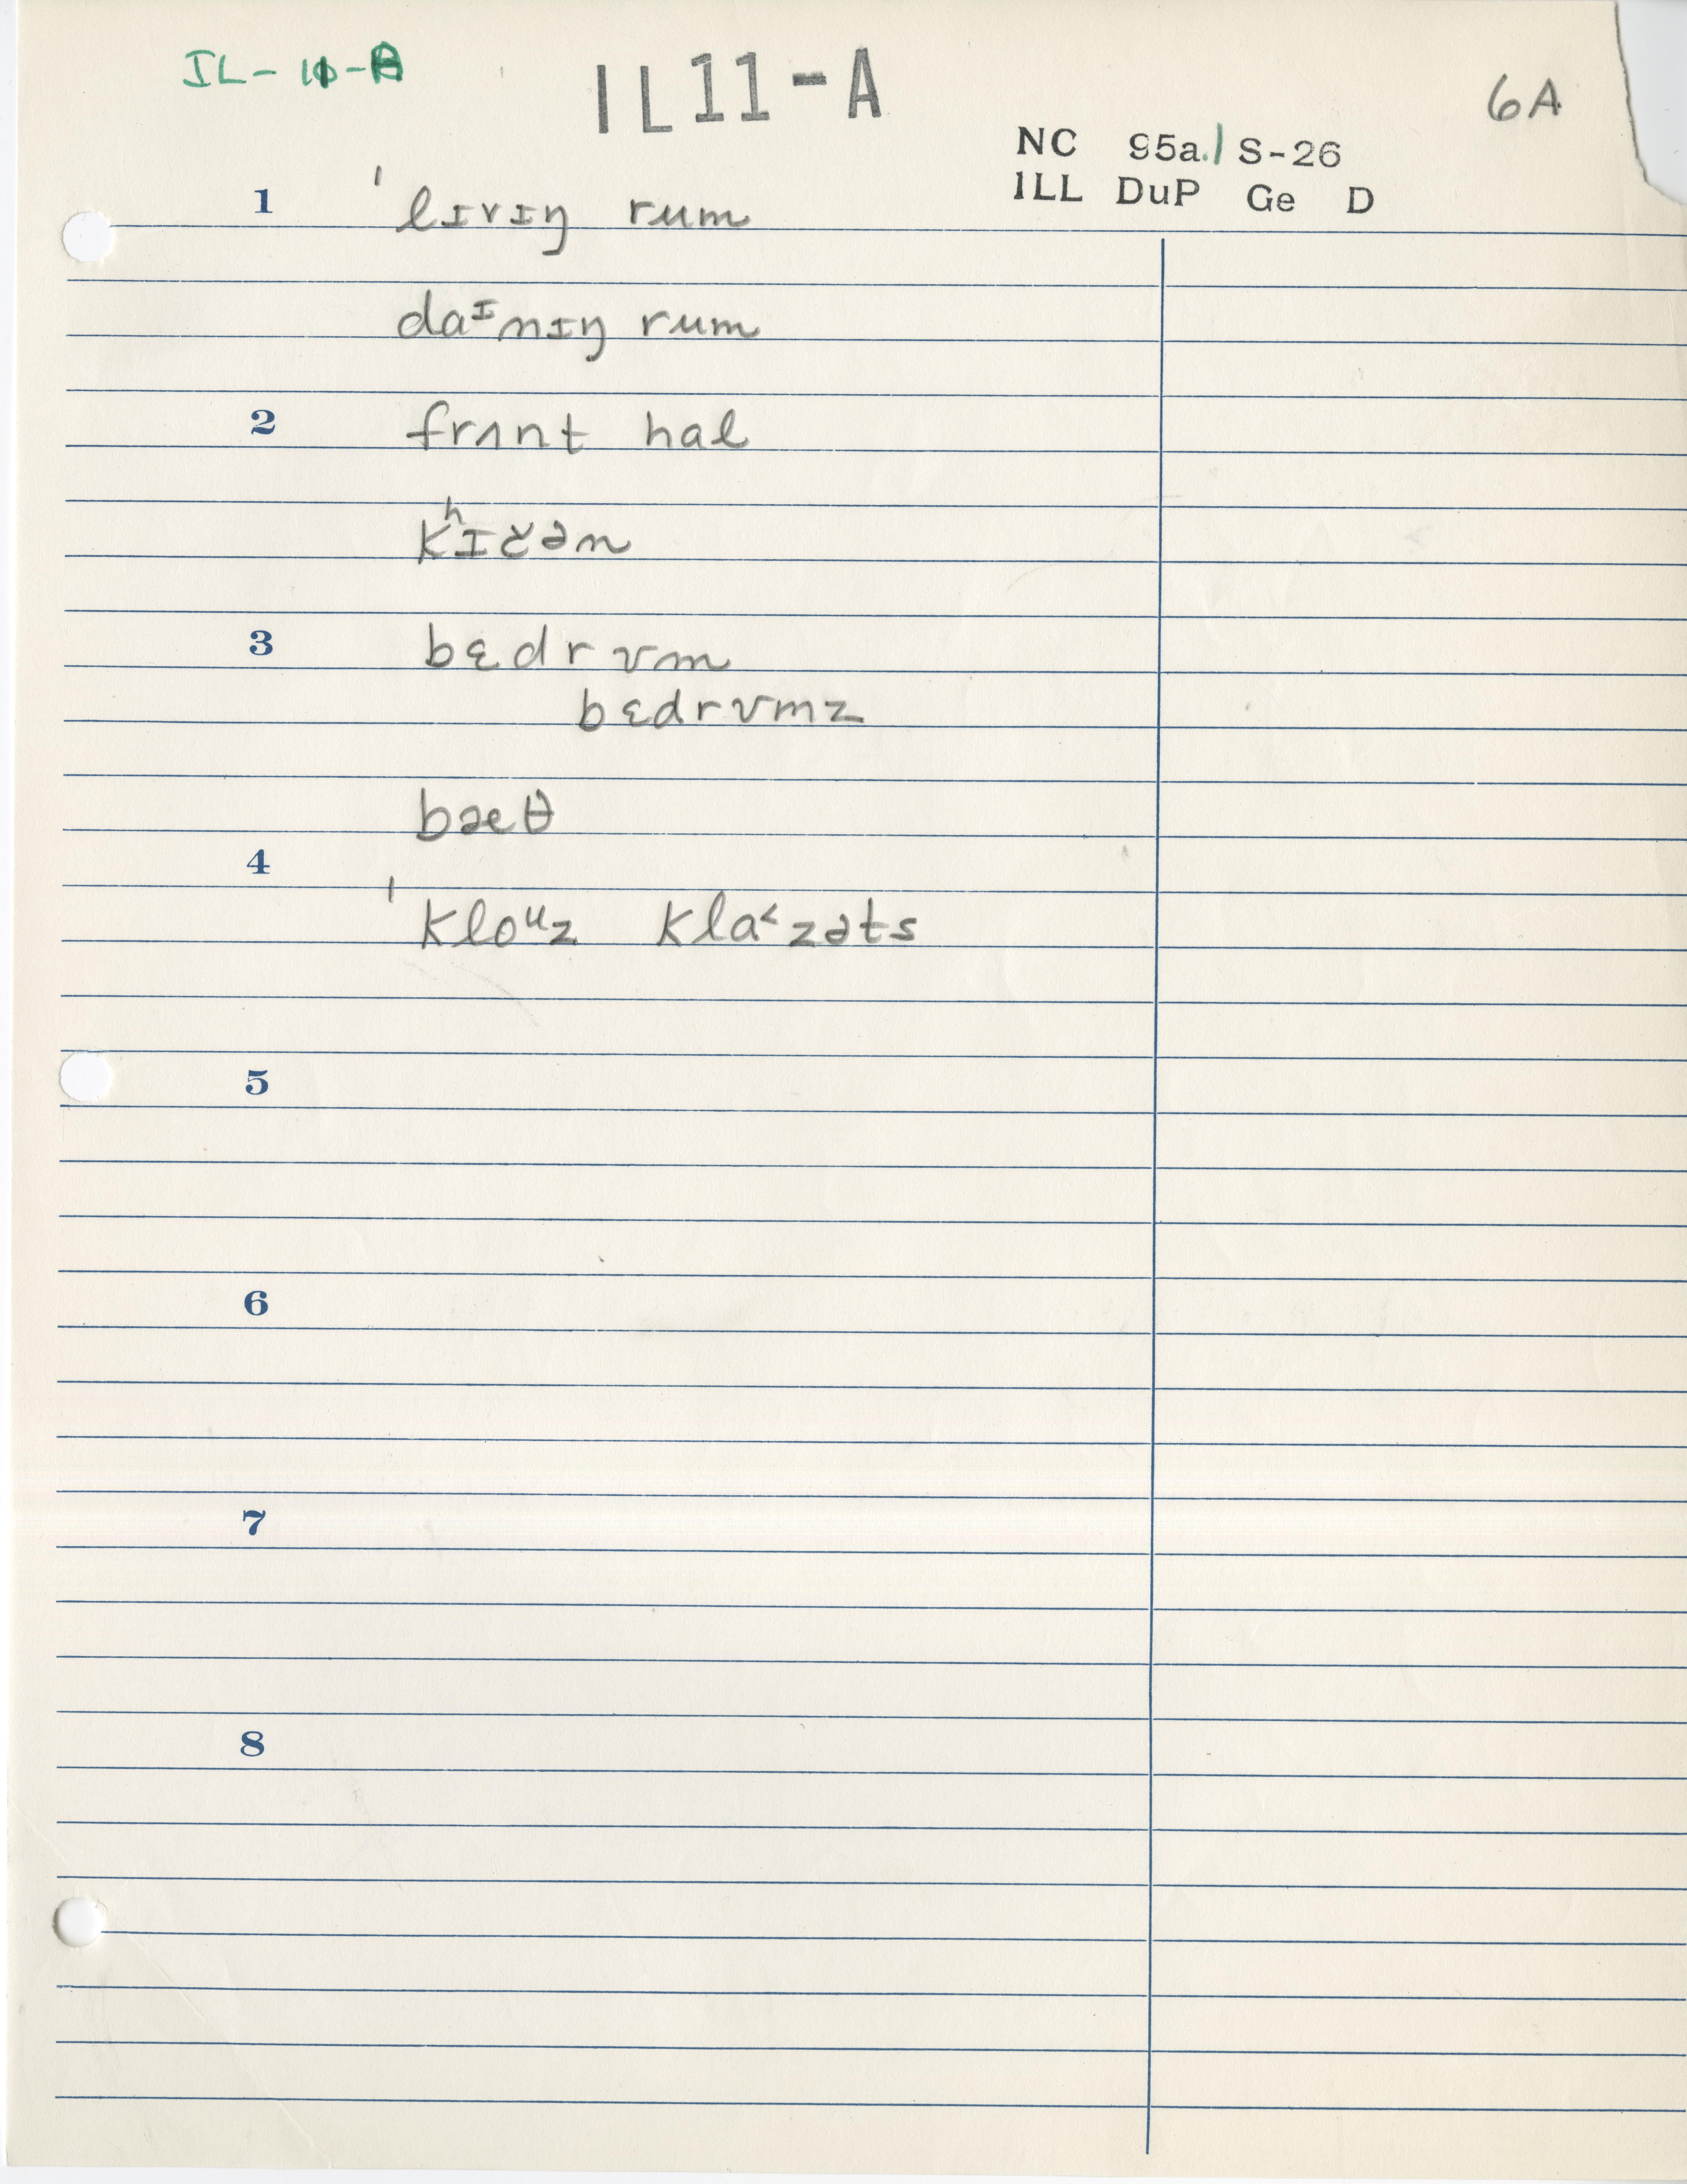 IL-11-A
IL11-A
6A
NC 95a.1 S-26
ILL DuP Ge D
1 ˈlɪvɪŋ rum
daᶦnɪŋ rum
2 frʌnt hal
kʰɪčən
3 bɛdrʊm
bɛdrʊmz
bæθ
4
ˈkloᵘz kla˂zəts
5
6
7
8